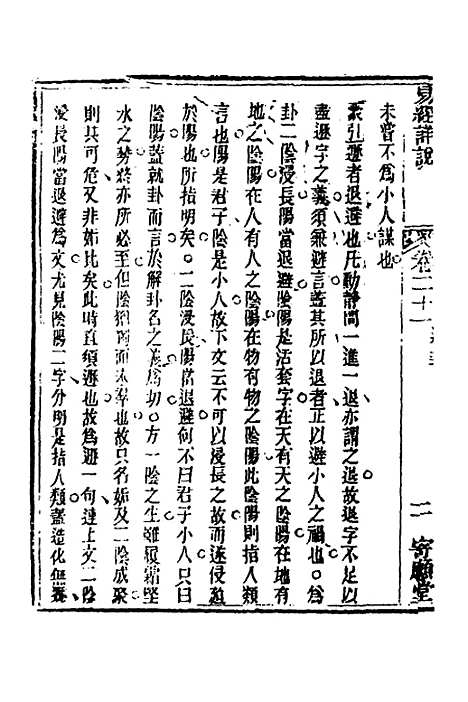 易經詳說
卷二十一
二
寄願堂
未嘗不為小人謀也
蒙引遯者退避也凡動靜間一進一退亦謂之退故退字不足以
盡遯字之義須兼避言蓋其所以退者正以避小人之禍也為
卦二陰浸長陽當退避陰陽是活套字在天有天之陰陽在地有
地之陰陽在人有人之陰陽在物有物之陰陽此陰陽則指人類
言也陽是君子陰是小人故下文云不可以浸長之故而遂侵迫
於陽也所指明矣二陰浸長陽當退避何不曰君子小人只曰
陰陽蓋就卦而言於解卦名之義為切方一陰之生雖履霜堅
冰之勢終亦所必至但陰猶獨而未羣也故只名姤及二陰成聚
則其可危又非姤比矣此時直須遯也故為遯一句連上文二陰
浸長陽當退避為文尤見陰陽二字分明是指人類蓋造化無